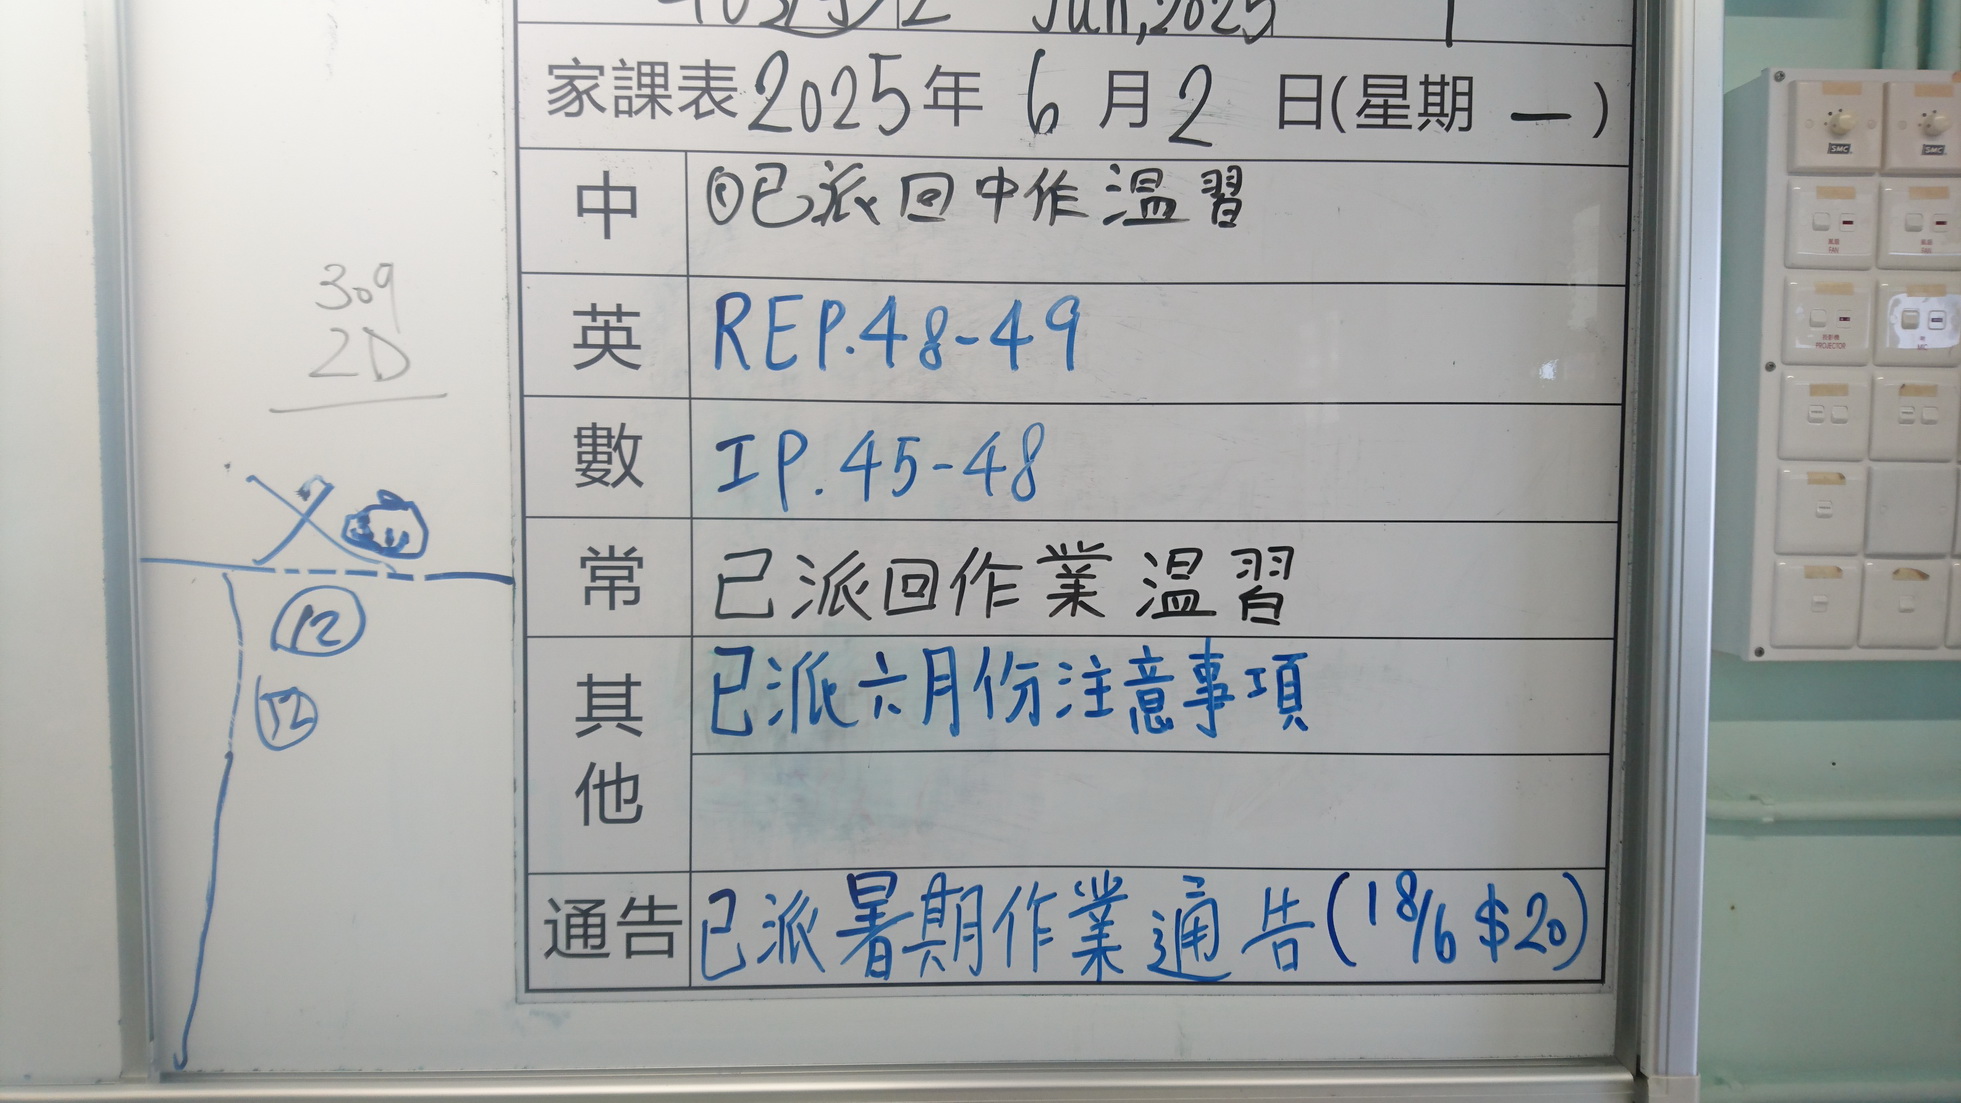 Jun,2025
家課表2025年 6 月 2 日(星期 一 )
中 ①已派回中作溫習
英 REP.48-49
數 IP.45-48
常 已派回作業溫習
其他 已派六月份注意事項
通告 已派暑期作業通告(18/6 $20)
309
2D
12
SMC
SMC
FAN
FAN
PROJECTOR